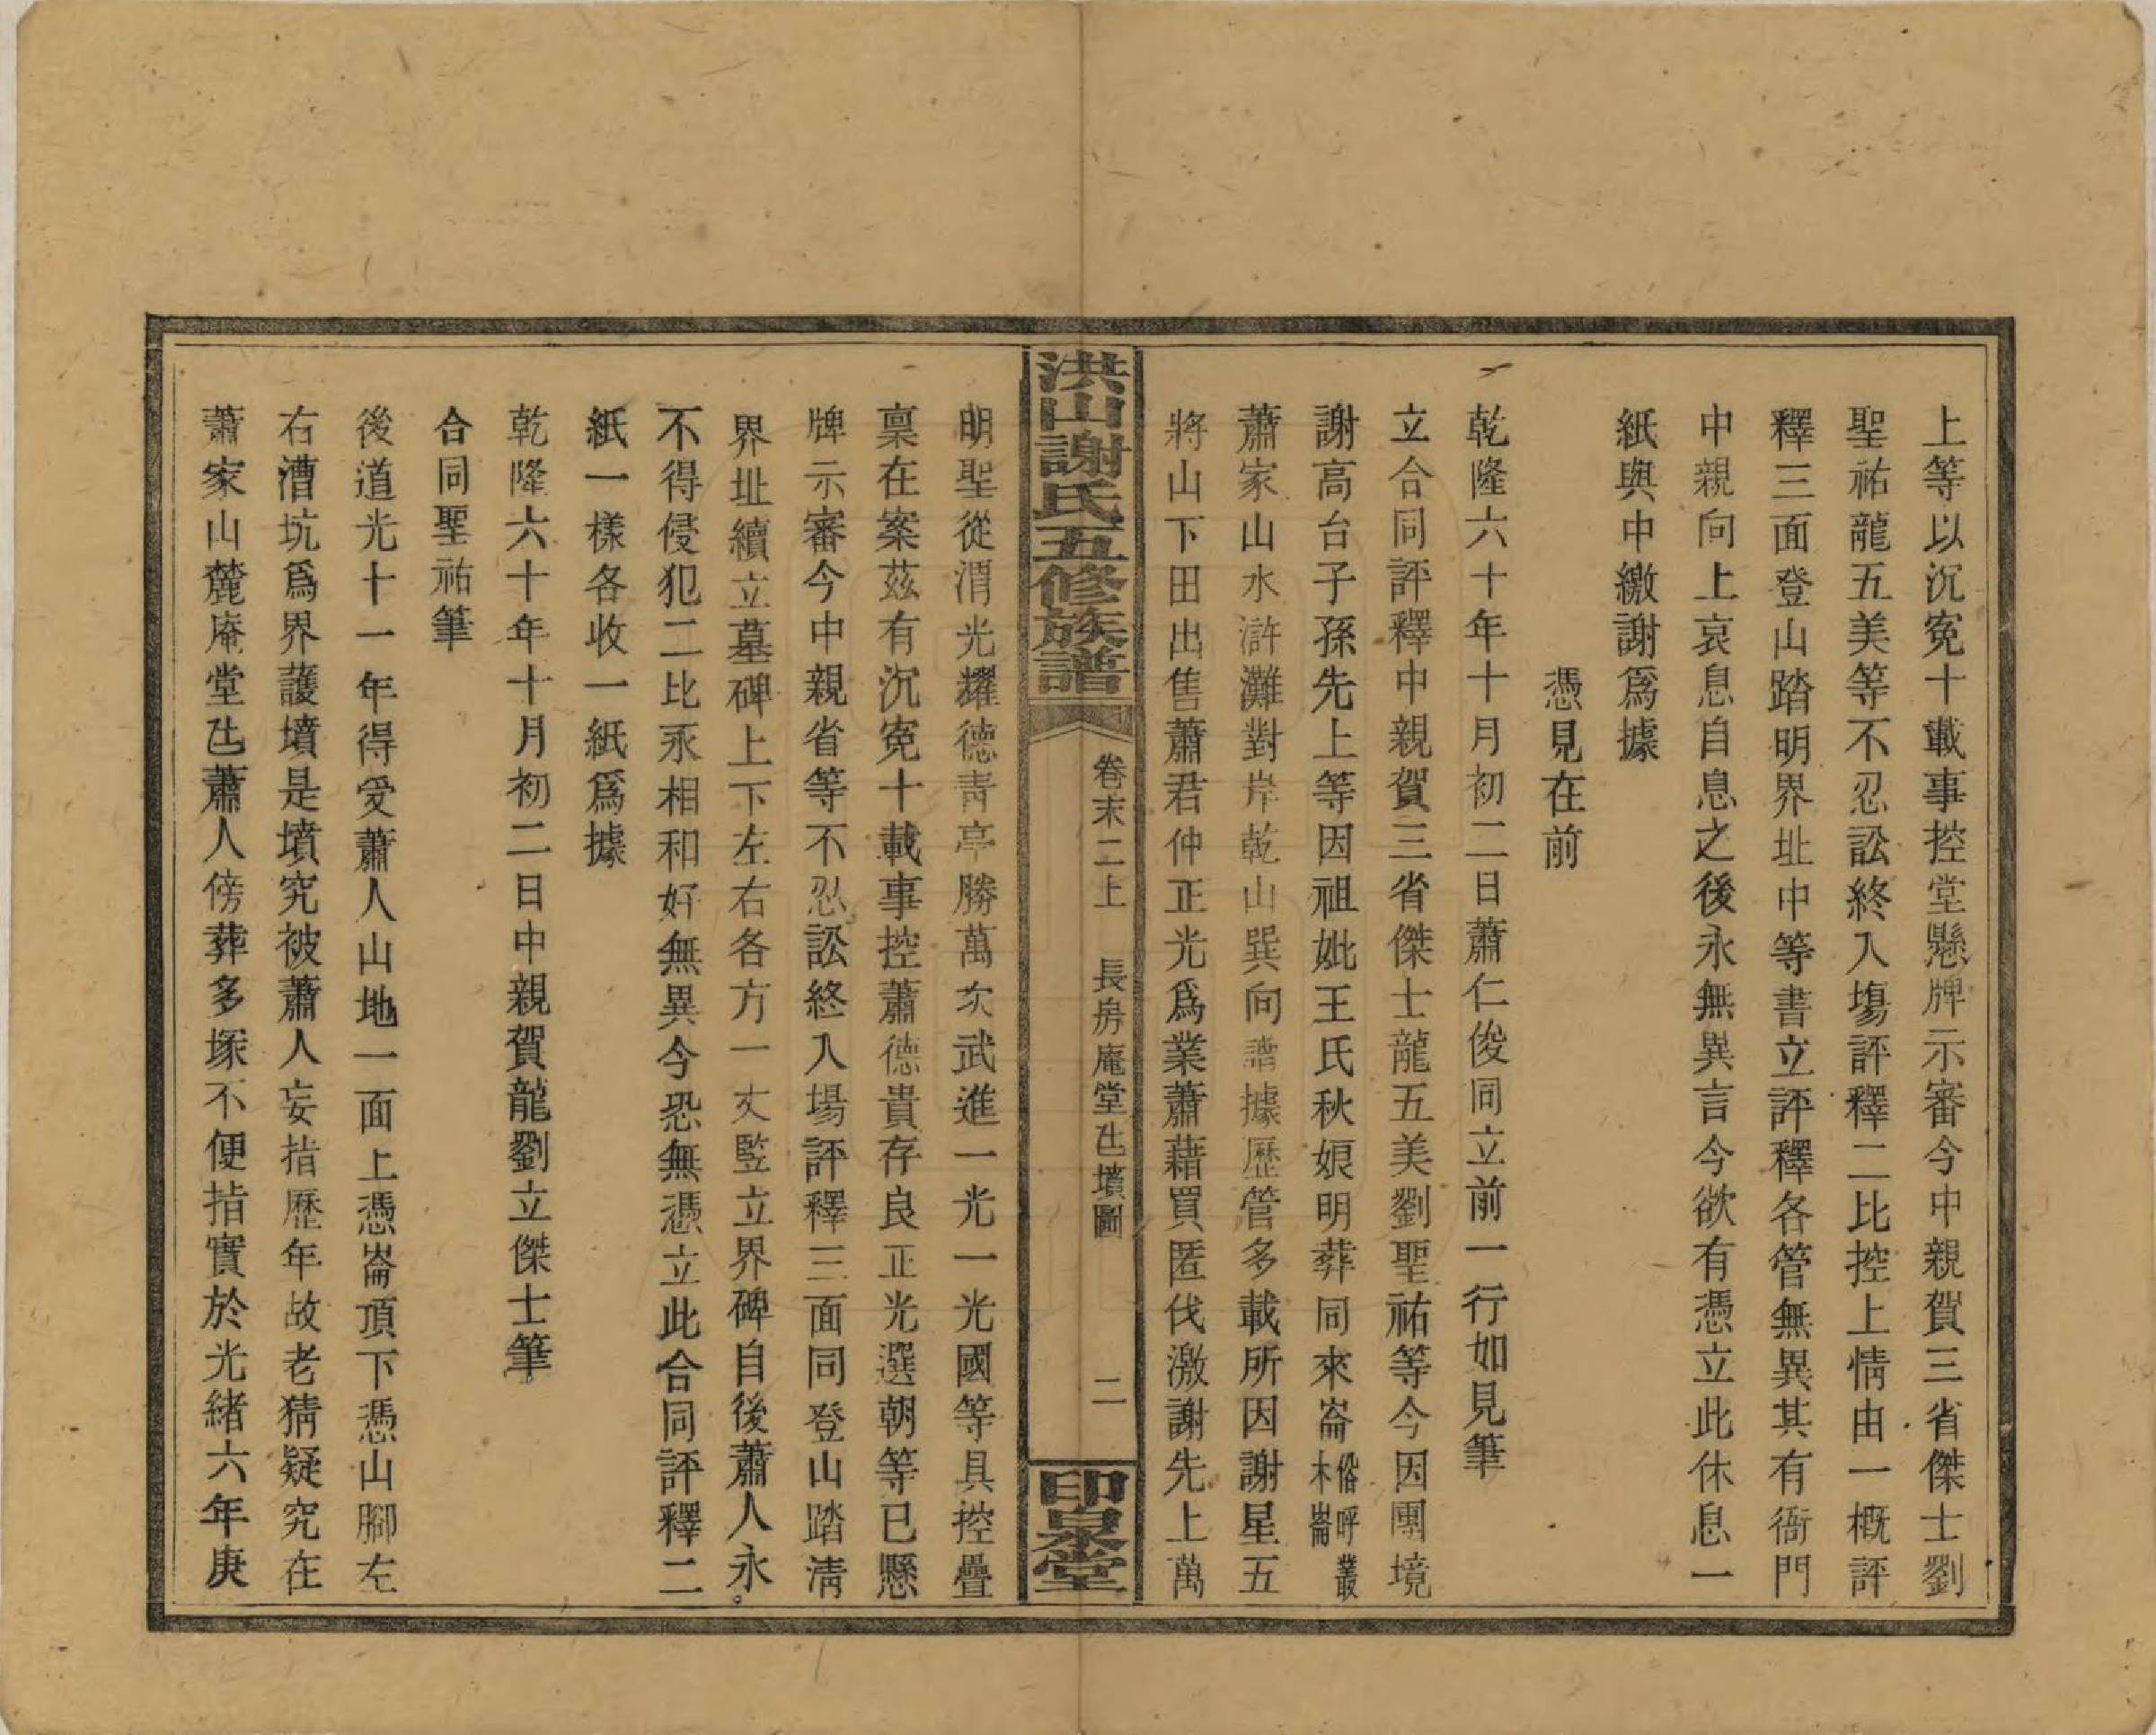 上等以沉寃十載事控堂懸牌示審今中親賀三省傑士劉
聖祐龍五美等不忍訟終入塲評釋二比控上情由一概評
釋三面登山踏明界址中等書立評釋各管無異其有衙門
中親向上哀息自息之後永無異言今欲有憑立此休息一
紙與中繳謝爲據
憑見在前
乾隆六十年十月初二日蕭仁俊同立前一行如見筆
立合同評釋中親賀三省傑士龍五美劉聖祐等今因團境
謝高台子孫先上等因祖妣王氏秋娘明葬同來崙俗呼叢木崙
蕭家山水滸灘對岸乾山巽向譜據歷管多載所因謝星五
將山下田出售蕭君仲正光爲業蕭藉買匿伐激謝先上萬
洪山謝氏五修族譜
卷末二上 長房庵堂乪墳圖 二
印泉堂
明聖從渭光耀德靑亭勝萬次武進一光一光國等具控疊
稟在案茲有沉寃十載事控蕭德貴存良正光選朝等已懸
牌示審今中親省等不忍訟終入場評釋三面同登山踏淸
界址續立墓碑上下左右各方一丈監立界碑自後蕭人永
不得侵犯二比永相和好無異今恐無憑立此合同評釋二
紙一樣各收一紙爲據
乾隆六十年十月初二日中親賀龍劉立傑士筆
合同聖祐筆
後道光十一年得受蕭人山地一面上憑崙頂下憑山腳左
右漕坑爲界護墳是墳究被蕭人妄指歷年故老猜疑究在
蕭家山麓庵堂乪蕭人傍葬多塚不便指實於光緒六年庚